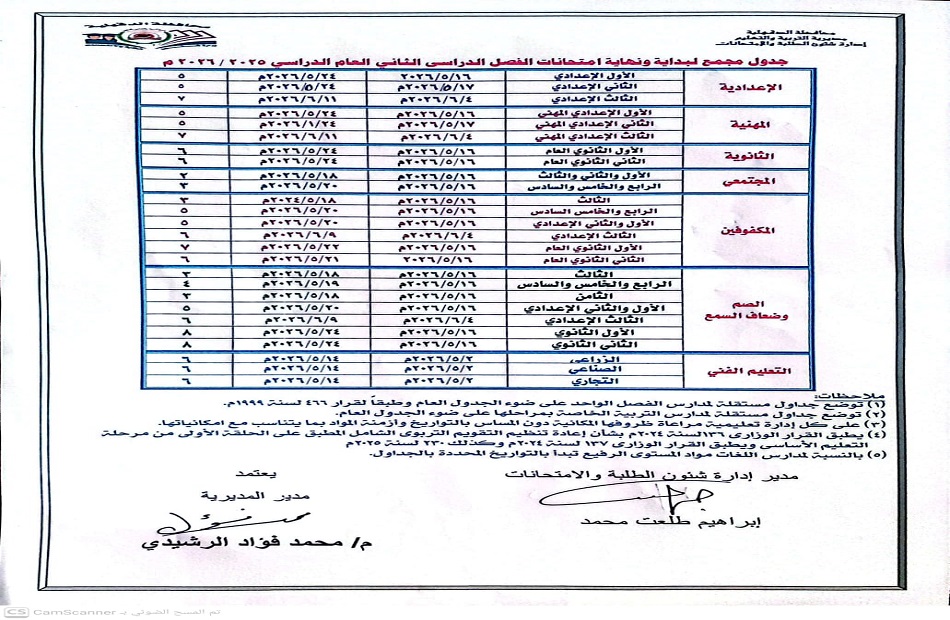 محافظة الدقهلية
محافظة الدقهلية
مديرية التربية والتعليم
إدارة شئون الطلبة والإمتحانات
جدول مجمع لبداية ونهاية امتحانات الفصل الدراسى الثانى العام الدراسي ٢٠٢٥ / ٢٠٢٦ م
الإعدادية
الأول الإعدادي ٢٠٢٦/٥/١٦ ٢٠٢٦/٥/٢٤م ٥
الثاني الإعدادي ٢٠٢٦/٥/١٧م ٢٠٢٦/٥/٢٤م ٥
الثالث الإعدادي ٢٠٢٦/٦/٤م ٢٠٢٦/٦/١١م ٧
المهنية
الأول الإعدادي المهني ٢٠٢٦/٥/١٦م ٢٠٢٦/٥/٢٤م ٥
الثاني الإعدادي المهني ٢٠٢٦/٥/١٧م ٢٠٢٦/١/٢٤م ٥
الثالث الإعدادي المهني ٢٠٢٦/٦/٤م ٢٠٢٦/٦/١١م ٧
الثانوية
الأول الثانوي العام ٢٠٢٦/٥/١٦م ٢٠٢٦/٥/٢٤م ٦
الثاني الثانوي العام ٢٠٢٦/٥/١٦م ٢٠٢٦/٥/٢٤م ٦
المجتمعي
الأول والثاني والثالث ٢٠٢٦/٥/١٦م ٢٠٢٦/٥/١٨م ٢
الرابع والخامس والسادس ٢٠٢٦/٥/١٦م ٢٠٢٦/٥/٢٠م ٣
المكفوفين
الثالث ٢٠٢٦/٥/١٦م ٢٠٢٤/٥/١٨م ٣
الرابع والخامس السادس ٢٠٢٦/٥/١٦م ٢٠٢٦/٥/٢٠م ٥
الأول والثاني الإعدادي ٢٠٢٦/٥/١٦م ٢٠٢٦/٥/٢٠م ٥
الثالث الإعدادي ٢٠٢٦/٦/٤م ٢٠٢٦/٦/٩م ٦
الأول الثانوي العام ٢٠٢٦/٥/١٦م ٢٠٢٦/٥/٢٢م ٧
الثاني الثانوي العام ٢٠٢٦/٥/١٦ ٢٠٢٦/٥/٢١م ٦
الصم
وضعاف السمع
الثالث ٢٠٢٦/٥/١٦م ٢٠٢٦/٥/١٨م ٣
الرابع والخامس والسادس ٢٠٢٦/٥/١٦م ٢٠٢٦/٥/١٩م ٤
الثامن ٢٠٢٦/٥/١٦م ٢٠٢٦/٥/١٨م ٣
الأول والثاني الإعدادي ٢٠٢٦/٥/١٦م ٢٠٢٦/٥/٢٠م ٥
الثالث الإعدادي ٢٠٢٦/٦/٤م ٢٠٢٦/٦/٩م ٦
الأول الثانوي ٢٠٢٦/٥/١٦م ٢٠٢٦/٥/٢٤م ٨
الثاني الثانوي ٢٠٢٦/٥/١٦م ٢٠٢٦/٥/٢٤م ٨
التعليم الفني
الزراعي ٢٠٢٦/٥/٢م ٢٠٢٦/٥/١٤م ٦
الصناعي ٢٠٢٦/٥/٢م ٢٠٢٦/٥/١٤م ٦
التجاري ٢٠٢٦/٥/٢م ٢٠٢٦/٥/١٤م ٦
ملاحظات:
(١) توضع جداول مستقلة لمدارس الفصل الواحد على ضوء الجدول العام وطبقاً لقرار ٤٦٦ لسنة ١٩٩٩م.
(٢) توضع جداول مستقلة لمدارس التربية الخاصة بمراحلها على ضوء الجدول العام.
(٣) على كل إدارة تعليمية مراعاة ظروفها المكانية دون المساس بالتواريخ وأزمنة المواد بما يتناسب مع امكانياتها.
(٤) يطبق القرار الوزارى ١٣٦لسنة ٢٠٢٤م بشأن إعادة تنظيم التقويم التربوى الشامل المطبق على الحلقة الأولى من مرحلة
التعليم الأساسى ويطبق القرار الوزارى ١٣٧ لسنة ٢٠٢٤م وكذلك ٢٣٠ لسنة ٢٠٢٥م
(٥) بالنسبة لمدارس اللغات مواد المستوى الرفيع تبدأ بالتواريخ المحددة بالجداول.
مدير إدارة شئون الطلبة والامتحانات
إبراهيم طلعت محمد
يعتمد
مدير المديرية
م/ محمد فؤاد الرشيدي
CS CamScanner تم المسح الضوئي بـ